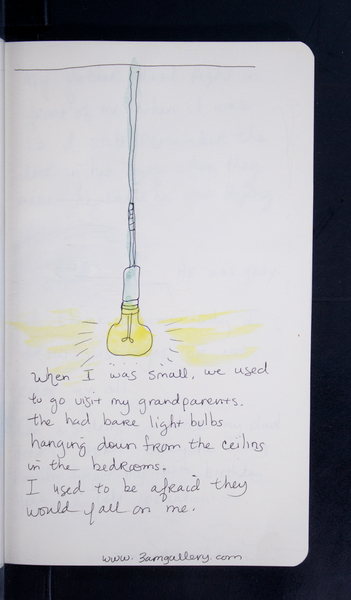 When I was small, we used
to go visit my grandparents.
the had bare light bulbs
hanging down from the ceiling
in the bedrooms.
I used to be afraid they
would fall on me.
www.3amgallery.com